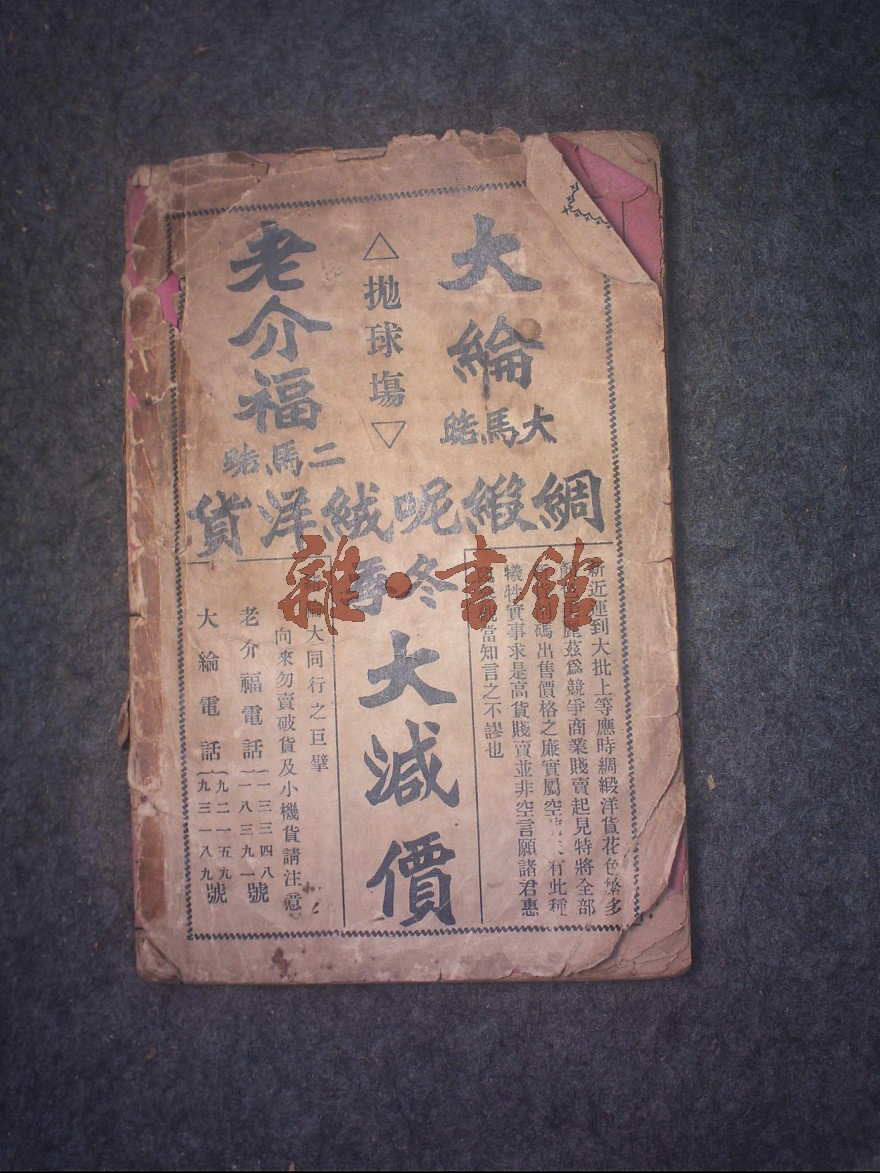 大綸
大馬路
△拋球塲▽
老介福
二馬路
綢緞呢絨洋貨
冬季
大減價
新近運到大批上等應時綢緞洋貨花色繁多
美麗茲爲競爭商業賤賣起見特將全部
碼出售價格之廉實屬空有此種
犧牲實事求是高貨賤賣並非空言願諸君惠
當知言之不謬也
大同行之巨擘
向來勿賣破貨及小機貨請注意
老介福電話 一三三四八 一八三九一 號
大綸電話 九二一五九 九三一八九 號
雜·書館